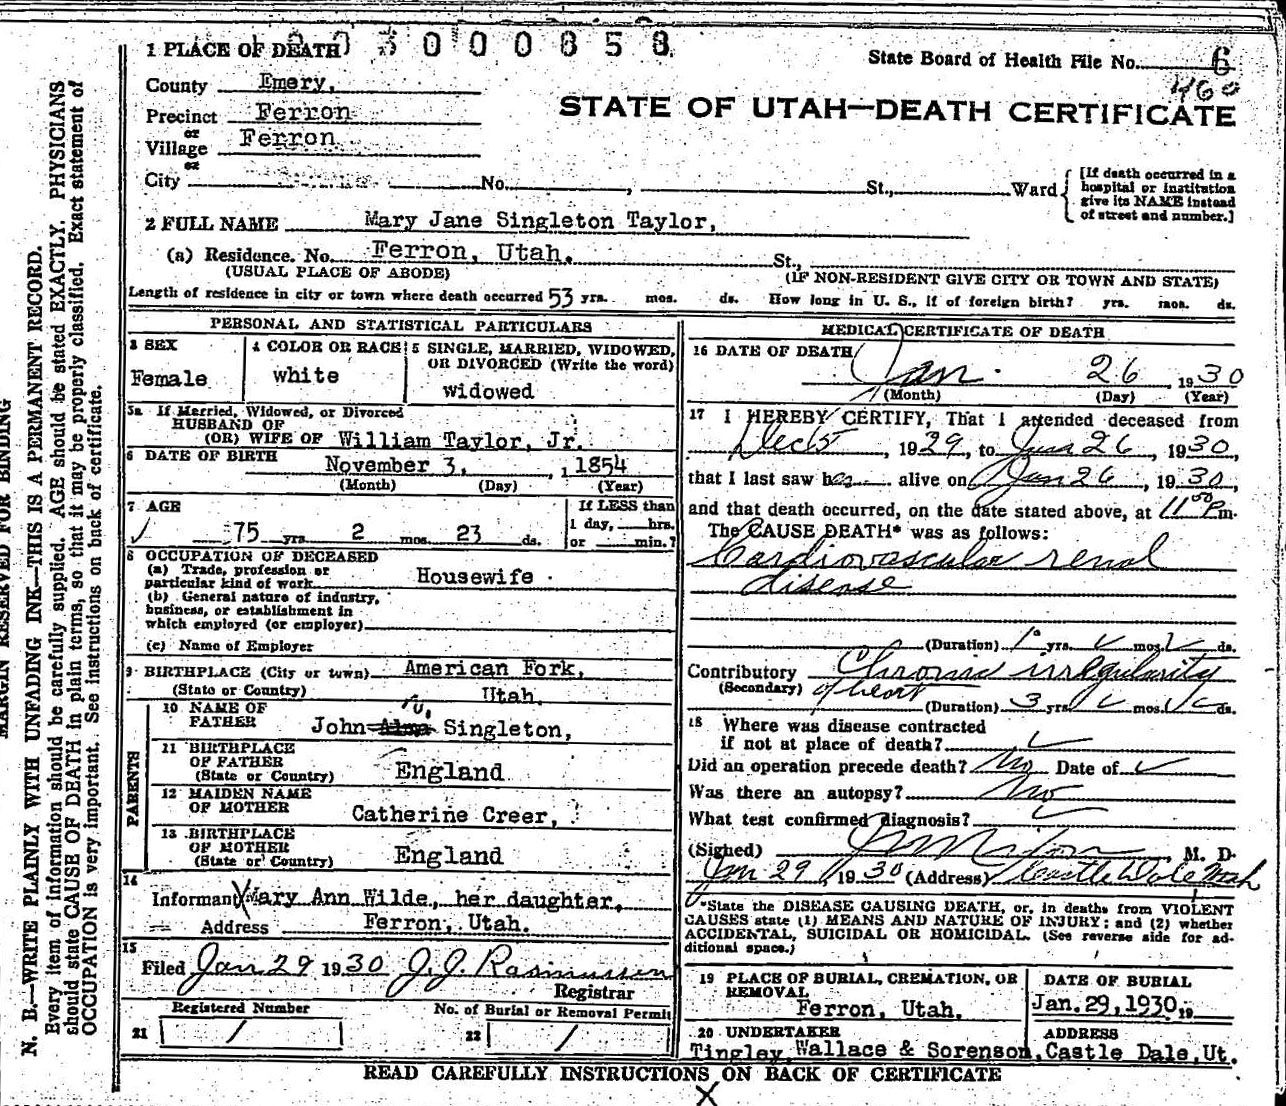 1 PLACE OF DEATH 3 0 0 0 0 8 5 8
State Board of Health File No. 6
460
County Emery,
STATE OF UTAH—DEATH CERTIFICATE
Precinct Ferron
or
Village Ferron
or
City No. , St., Ward
[If death occurred in a
hospital or institution
give its NAME instead
of street and number.]
2 FULL NAME Mary Jane Singleton Taylor,
(a) Residence. No. Ferron, Utah. St.,
(USUAL PLACE OF ABODE) (IF NON-RESIDENT GIVE CITY OR TOWN AND STATE)
Length of residence in city or town where death occurred 53 yrs. mos. ds. How long in U. S., if of foreign birth? yrs. mos. ds.
PERSONAL AND STATISTICAL PARTICULARS
3 SEX
Female
4 COLOR OR RACE
white
5 SINGLE, MARRIED, WIDOWED,
OR DIVORCED (Write the word)
widowed
5a If Married, Widowed, or Divorced
HUSBAND OF
(OR) WIFE OF William Taylor, Jr.
6 DATE OF BIRTH November 3, , 1854
(Month) (Day) (Year)
7 AGE
75 yrs. 2 mos. 23 ds.
If LESS than
1 day, hrs.
or min.?
8 OCCUPATION OF DECEASED
(a) Trade, profession or
particular kind of work Housewife
(b) General nature of industry,
business, or establishment in
which employed (or employer)
(c) Name of Employer
9 BIRTHPLACE (City or town) American Fork,
(State or Country) Utah.
PARENTS
10 NAME OF
FATHER John Singleton,
11 BIRTHPLACE
OF FATHER
(State or Country) England
12 MAIDEN NAME
OF MOTHER Catherine Creer,
13 BIRTHPLACE
OF MOTHER
(State or Country) England
14
Informant Mary Ann Wilde, her daughter,
Address Ferron, Utah.
15
Filed Jan 29 1930 J. J. Rasmussen
Registrar
Registered Number
21 /
No. of Burial or Removal Permit
22 /
MEDICAL CERTIFICATE OF DEATH
16 DATE OF DEATH
Jan. 26 1930
(Month) (Day) (Year)
17 I HEREBY CERTIFY, That I attended deceased from
Dec 5 , 1929, to Jan 26 , 1930,
that I last saw her alive on Jan 26 , 1930,
and that death occurred, on the date stated above, at 11 00 P m.
The CAUSE DEATH* was as follows:
Cardiovascular renal
disease
(Duration) 10 yrs. mos. ds.
Contributory Chronic irregularity
(Secondary) of heart
(Duration) 3 yrs. mos. ds.
18 Where was disease contracted
if not at place of death?
Did an operation precede death? No Date of
Was there an autopsy? No
What test confirmed diagnosis?
(Signed) M. D.
Jan 29, 1930 (Address) Castle Dale Utah
*State the DISEASE CAUSING DEATH, or, in deaths from VIOLENT
CAUSES state (1) MEANS AND NATURE OF INJURY; and (2) whether
ACCIDENTAL, SUICIDAL OR HOMICIDAL. (See reverse side for ad-
ditional space.)
19 PLACE OF BURIAL, CREMATION, OR
REMOVAL
Ferron, Utah.
DATE OF BURIAL
Jan. 29, 1930, 19
20 UNDERTAKER
Tingley, Wallace & Sorenson,
ADDRESS
Castle Dale, Ut.
READ CAREFULLY INSTRUCTIONS ON BACK OF CERTIFICATE
X
MARGIN RESERVED FOR BINDING
N. B.—WRITE PLAINLY WITH UNFADING INK—THIS IS A PERMANENT RECORD.
Every item of information should be carefully supplied. AGE should be stated EXACTLY. PHYSICIANS
should state CAUSE OF DEATH in plain terms, so that it may be properly classified. Exact statement of
OCCUPATION is very important. See instructions on back of certificate.